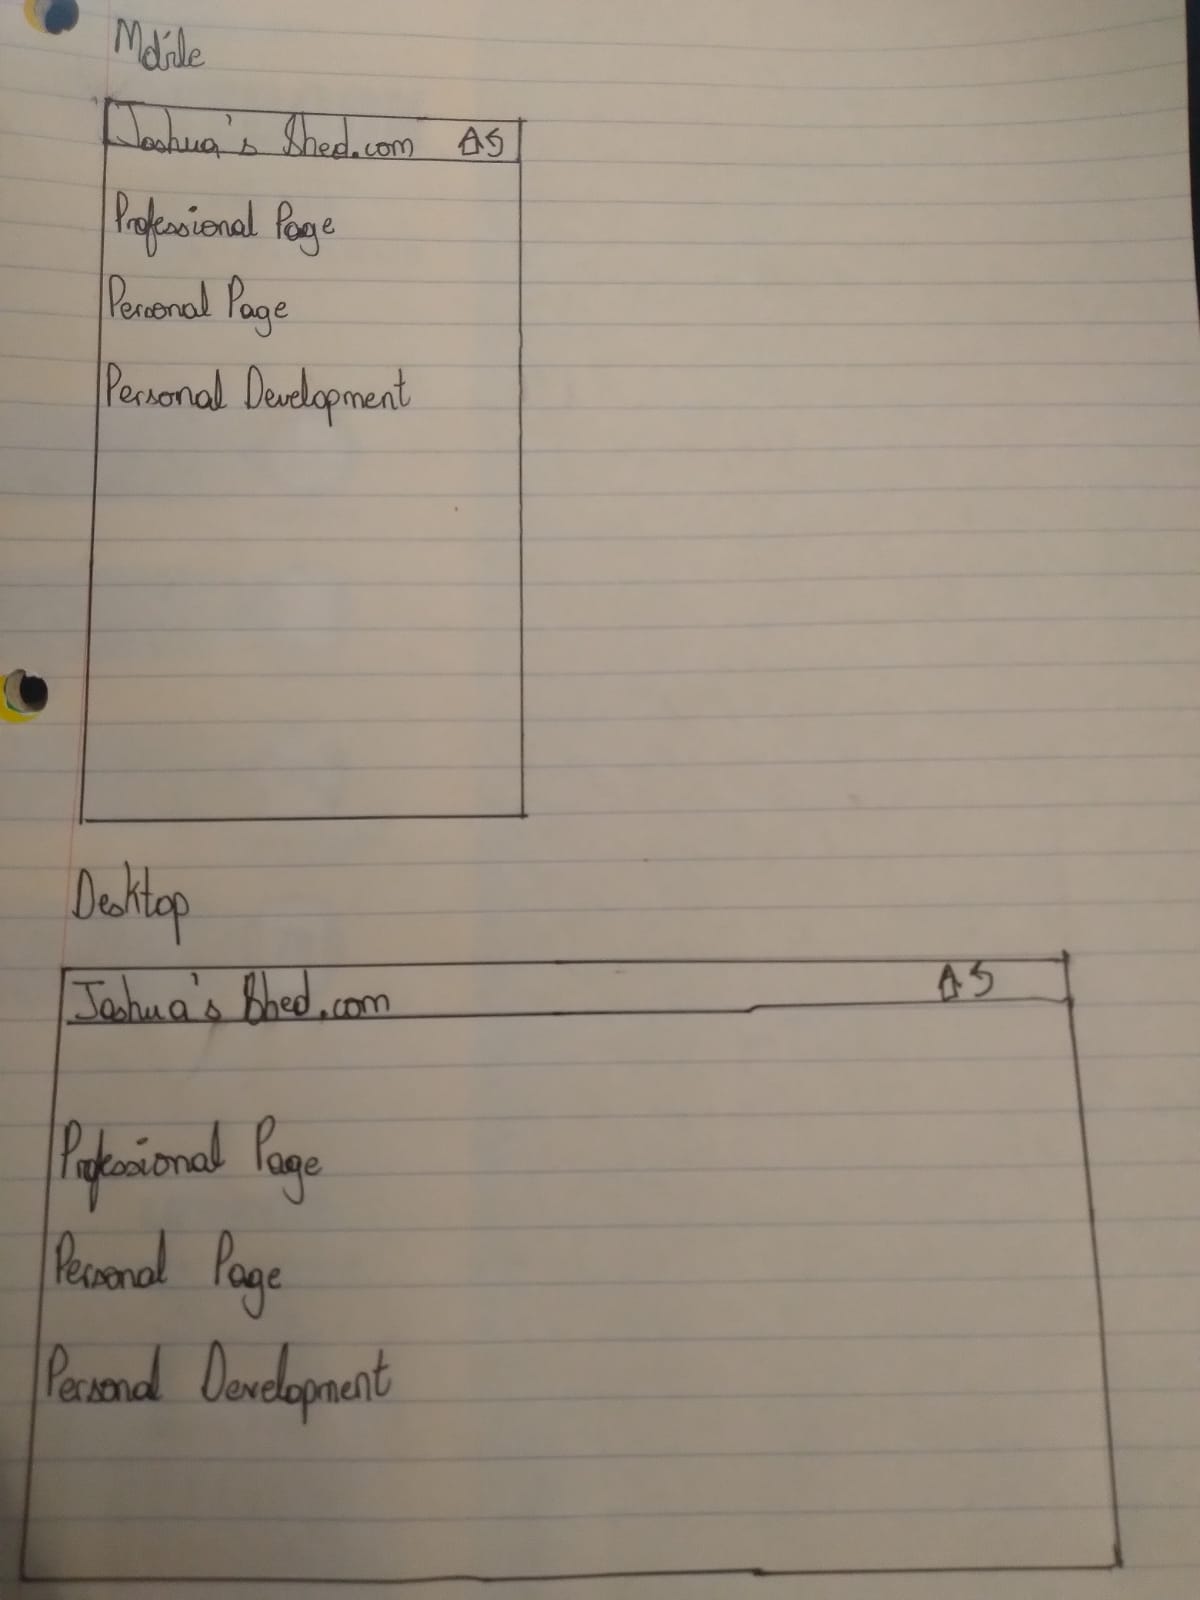 Mobile
Joshua's Shed.com AS
Professional Page
Personal Page
Personal Development
Desktop
Joshua's Shed.com AS
Professional Page
Personal Page
Personal Development